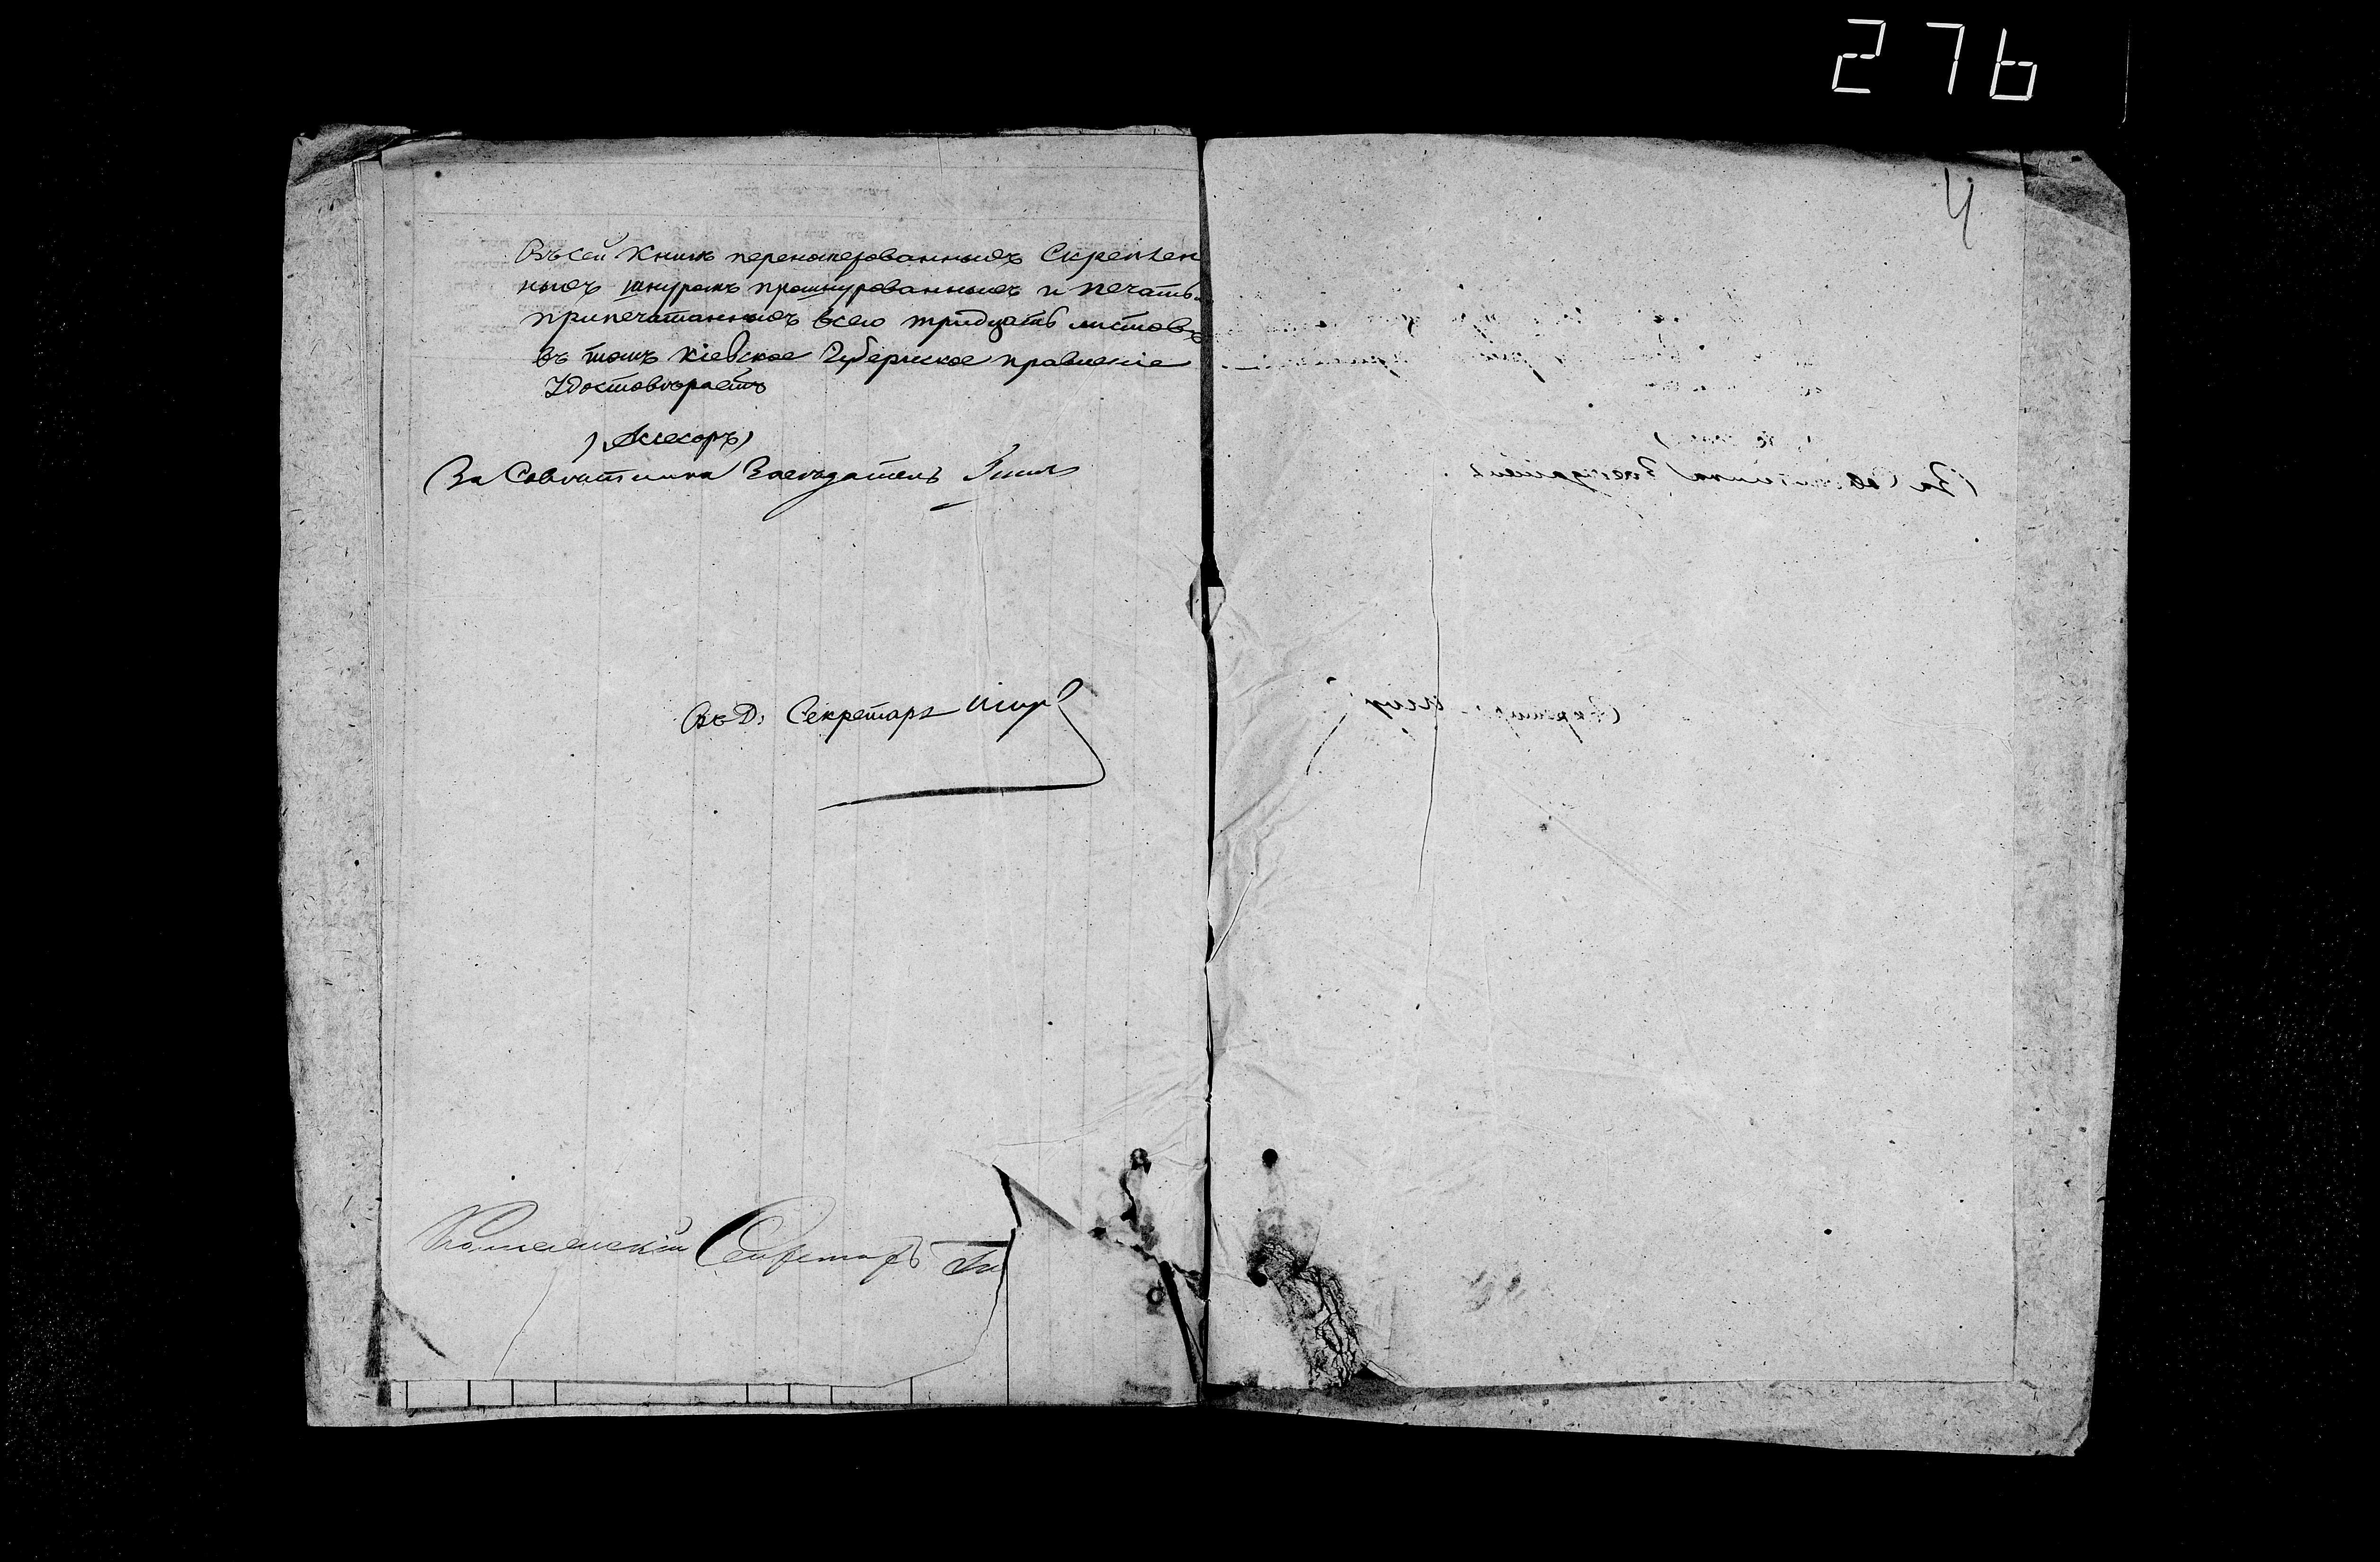 276
4
Въ сей книгѣ переномерованныхъ Скреплен
ныхъ шнуромъ прошнурованныхъ и печатью
припечатанныхъ всего тридцать листовъ
въ томъ Кіевское Губернское правленіе
Удостовѣряетъ
Асесоръ
За Совѣтника Засѣдатель
Въ Д: Секретарь
Коллежскій Секретарь